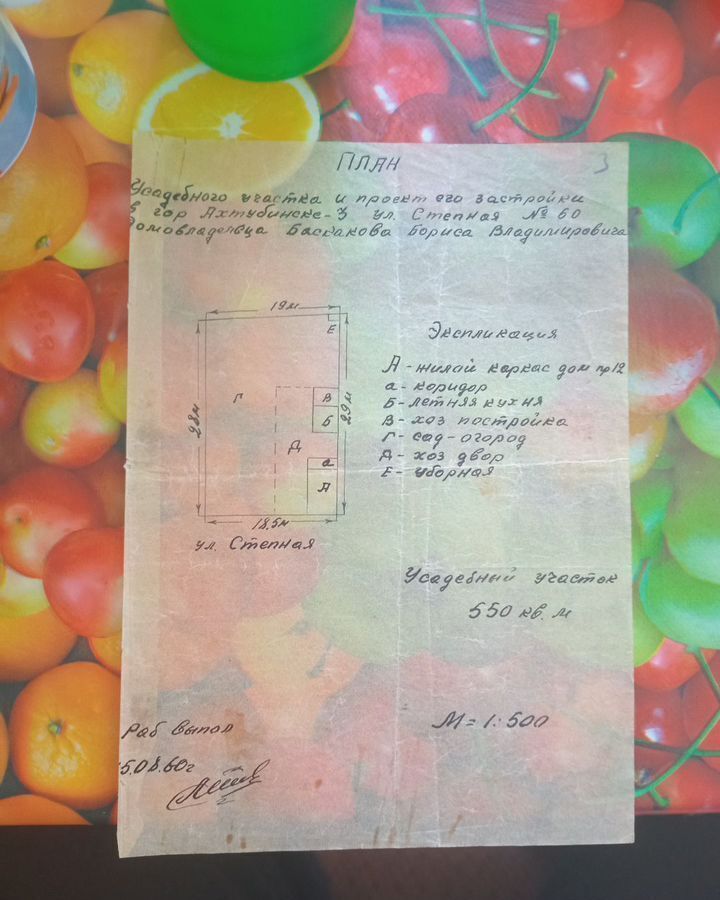 ПЛАН
3
Усадебного участка и проект его застройки
в гор Ахтубинске-3 ул. Степная № 60
домовладельца Баскакова Бориса Владимировича
19м
Е
Экспликация
А - жилай каркас дом пр12
а - коридор
Б - летняя кухня
В - хоз постройка
Г - сад-огород
Д - хоз двор
Е - уборная
28м
Г
В
29м
Б
Д
а
А
18,5м
ул. Степная
Усадебный участок
550 кв. м
М = 1:500
Раб выпол
5.08.60г